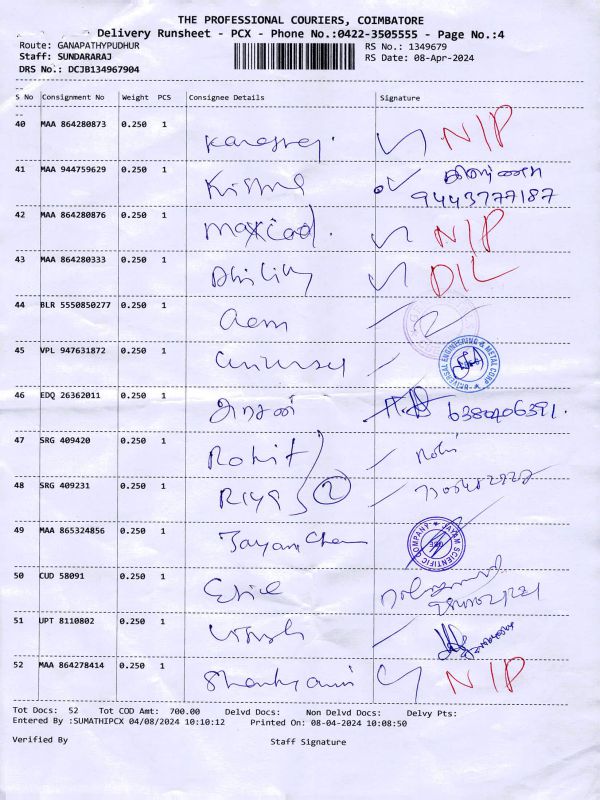 THE PROFESSIONAL COURIERS, COIMBATORE
Delivery Runsheet - PCX - Phone No.:0422-3505555 - Page No.:4
Route: GANAPATHYPUDHUR RS No.: 1349679
Staff: SUNDARARAJ RS Date: 08-Apr-2024
DRS No.: DCJB134967904
S No Consignment No Weight PCS Consignee Details Signature
40 MAA 864280873 0.250 1 N/P
41 MAA 944759629 0.250 1 9443777187
42 MAA 864280876 0.250 1 N/P
43 MAA 864280333 0.250 1 D/L
44 BLR 5550850277 0.250 1
45 VPL 947631872 0.250 1 UNIVERSAL ENGINEERING & METAL CORP
46 EDQ 26362011 0.250 1 அரசன்
47 SRG 409420 0.250 1 Rohit Rohi
48 SRG 409231 0.250 1 Riya 2
49 MAA 865324856 0.250 1 Jayam Chem JAYAM SCIENTIFIC COMPANY CBE
50 CUD 58091 0.250 1
51 UPT 8110802 0.250 1
52 MAA 864278414 0.250 1 N/P
Tot Docs: 52 Tot COD Amt: 700.00 Delvd Docs: Non Delvd Docs: Delvy Pts:
Entered By :SUMATHIPCX 04/08/2024 10:10:12 Printed On: 08-04-2024 10:08:50
Verified By Staff Signature